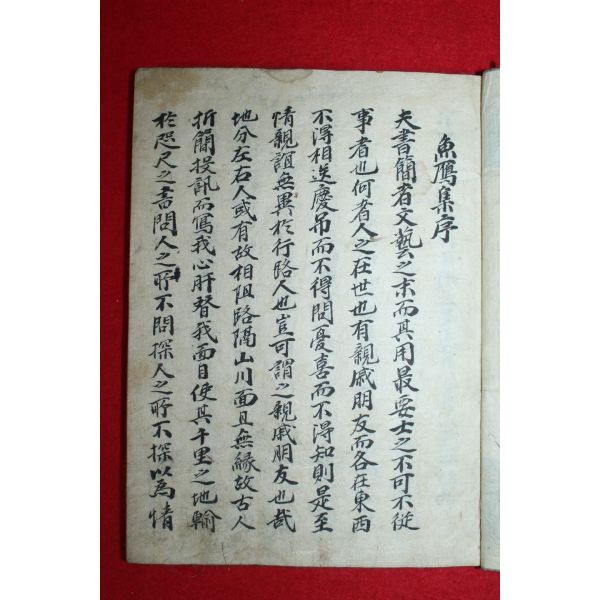 魚鴈集序
夫書簡者文藝之末而其用最要士之不可不從
事者也何者人之在世也有親戚朋友而各在東西
不得相送慶吊而不得問憂喜而不得知則是至
情親誼無異於行路人也豈可謂之親戚朋友也哉
地分左右人或有故相阻路隔山川面且無緣故古人
折簡投訊而寫我心肝替我面目使其千里之地輸
於咫尺之書問人之所不問探人之所不探以為情